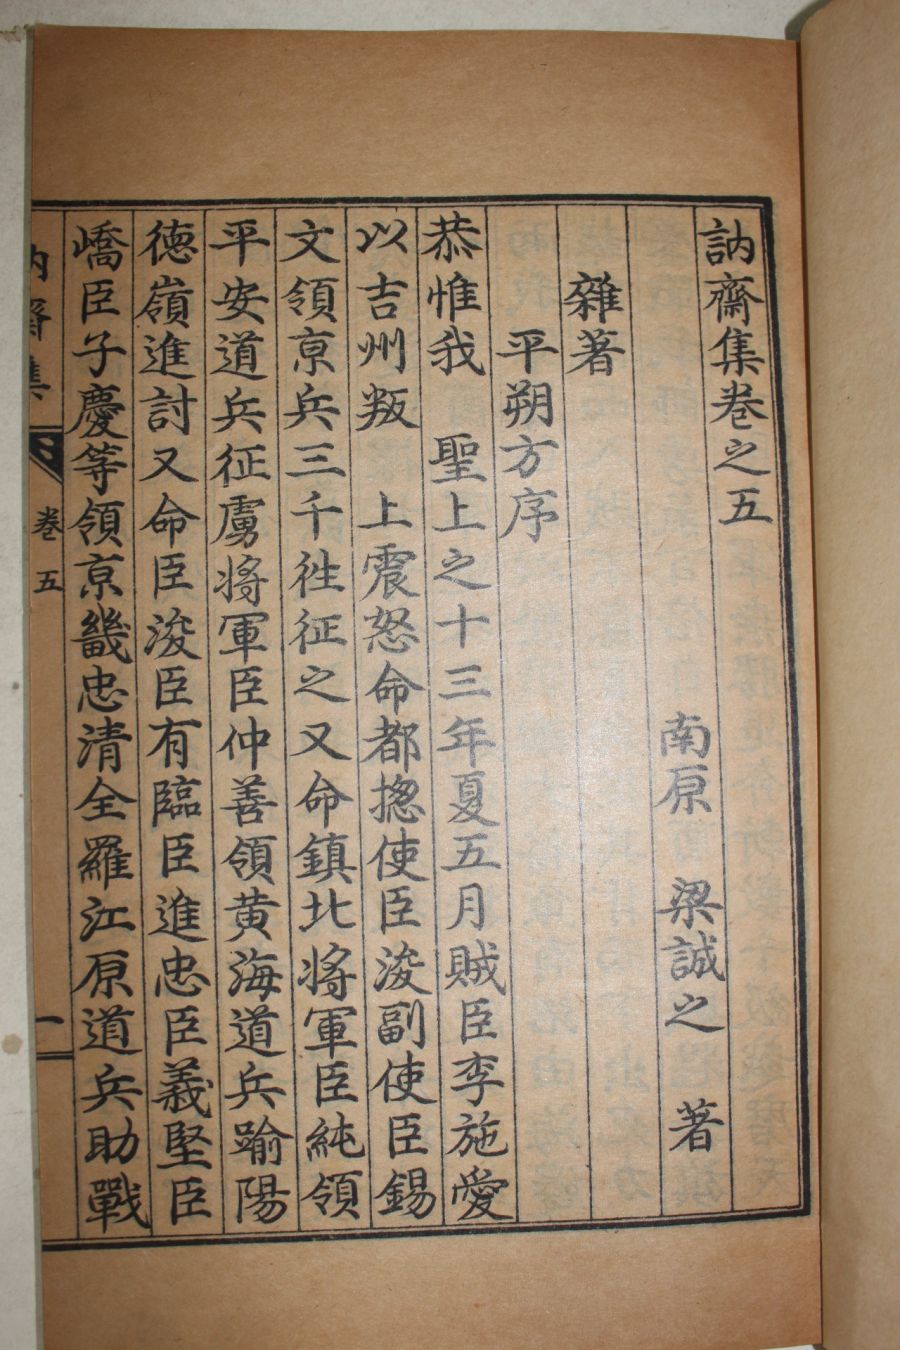 訥齋集卷之五
南原 梁誠之 著
雜著
平朔方序
恭惟我 聖上之十三年夏五月賊臣李施愛
以吉州叛 上震怒命都摠使臣浚副使臣錫
文領京兵三千徃征之又命鎮北將軍臣純領
平安道兵征虜將軍臣仲善領黃海道兵踰陽
德嶺進討又命臣浚臣有臨臣進忠臣義堅臣
嶠臣子慶等領京畿忠清全羅江原道兵助戰
訥齋集 卷五 一